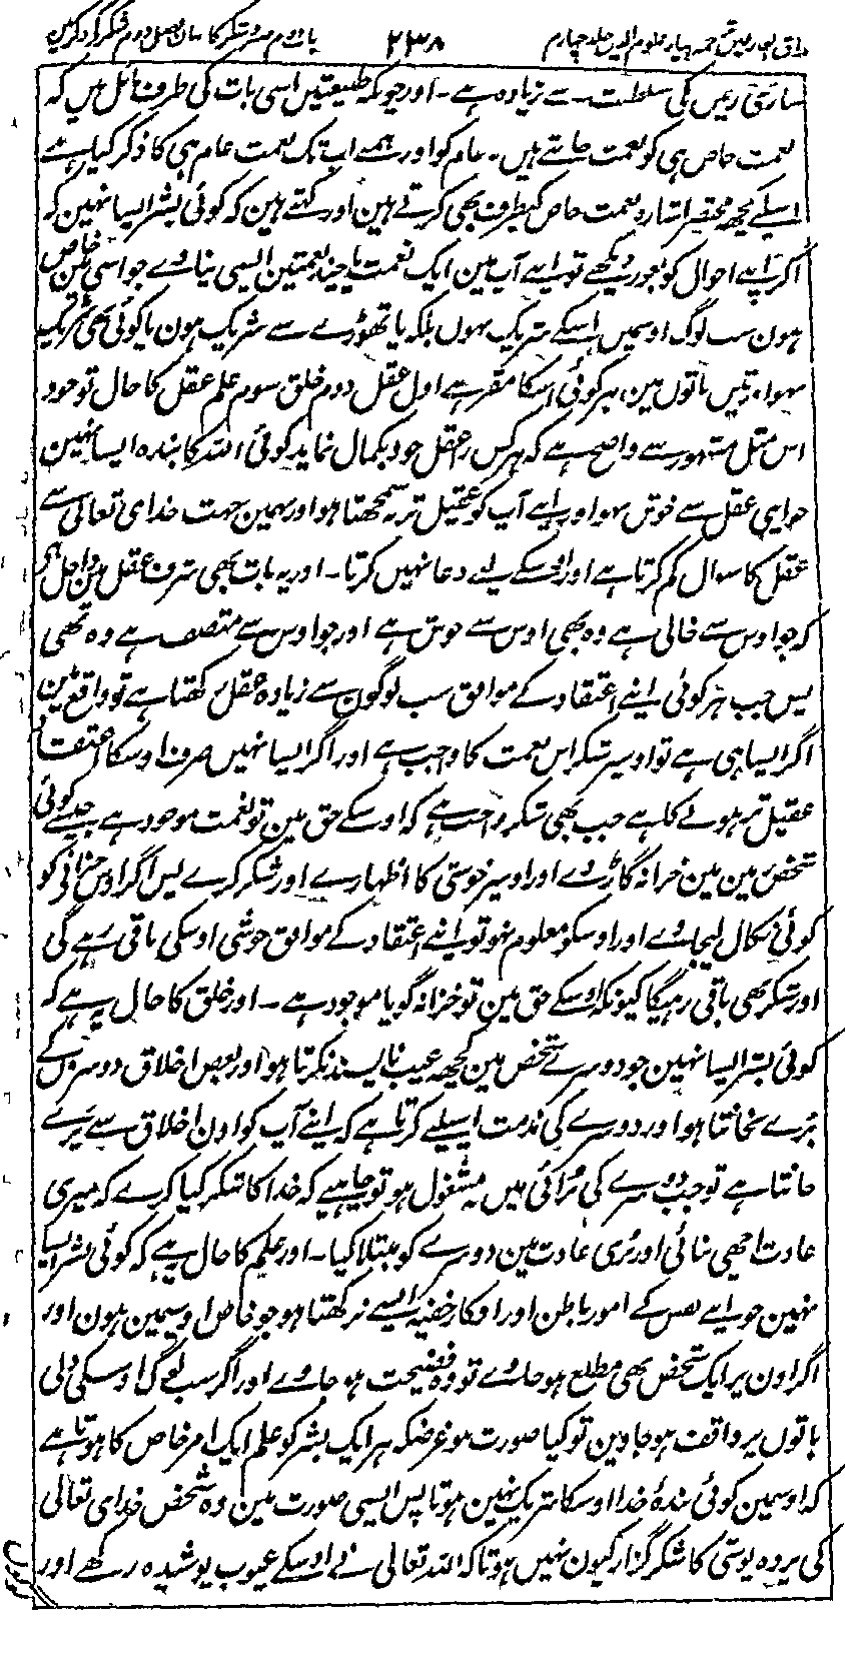 مذاق العارفین ترجمہ احیاء علوم الدین جلد چہارم ۲۳۸ باب دوم صبر و شکر کا بیان فصل دوم شکر کے ذکر مین
ساری زمین کی سلطنت سے زیادہ ہے۔ اور چونکہ طبیعتیں اسی بات کی طرف مائل ہیں کہ
نعمت خاص ہی کو نعمت جانتے ہیں۔ عام کو اور ہمنے اب تک نعمت عام ہی کا ذکر کیا ہے
اسلیے کچھ مختصر اشارہ نعمت خاص کیطرف بھی کرتے ہین اور کہتے ہین کہ کوئی بشر ایسا نہین کہ
اگر اپنے احوال کو بغور دیکھے تو اپنے آپ مین ایک نعمت یا چند نعمتین ایسی نپاوے جو اسی مین خاص
ہون سب لوگ اوسمیں اسکے شریک نہوں بلکہ یا تھوڑے سے شریک ہون یا کوئی بھی شریک
نہو اور تین باتوں مین ہر کوئی اسکا مقر ہے اول عقل دوم خلق سوم علم عقل کا حال تو خود
اس مثل مشہور سے واضح ہے کہ ہر کس را عقل خود بکمال نماید کوئی اللہ کا بندہ ایسا نہین
جو اپنی عقل سے خوش نہو اور اپنے آپ کو عقیل تر نہ سمجھتا ہو اور ہمین جہت خدای تعالی سے
عقل کا سوال کم کرتا ہے اور اسکے لیے دعا نہیں کرتا۔ اور یہ بات بھی شرف عقل مین داخل ہی
کہ جو اوس سے خالی ہے وہ بھی اوس سے خوش ہے اور جو اوس سے متصف ہے وہ بھی
پس جب ہر کوئی اپنے اعتقاد کے موافق سب لوگون سے زیادہ عقل رکھتا ہے تو واقع مین
اگر ایسا ہی ہے تو اوسپر شکر اس نعمت کا واجب ہے اور اگر ایسا نہیں صرف اوسکا اعتقاد
عقیل تر ہونے کا ہے جب بھی شکر واجب ہے کہ اوسکے حق مین تو نعمت موجود ہے جیسے کوئی
شخص زمین مین خزانہ گاڑ دے اور اوسپر خوشی کا اظہار کرے اور شکر کرے پس اگر اوس خزانی کو
کوئی نکال لیجاوے اور اوسکو معلوم نہو تو اپنے اعتقاد کے موافق خوشی اوسکی باقی رہے گی
اور شکر بھی باقی رہیگا کیونکہ اوسکے حق مین تو خزانہ گویا موجود ہے۔ اور خلق کا حال یہ ہے کہ
کوئی بشر ایسا نہین جو دوسرے شخص مین کچھ عیب ناپسند نکرتا ہو اور بعض اخلاق دوسرں کے
بُرے نجانتا ہو اور دوسرے کی مذمت اسیلیے کرتا ہے کہ اپنے آپ کو اون اخلاق سے بَرے
جانتا ہے تو جب دوسرے کی بُرائی میں نہ مشغول ہو تو چاہیے کہ خدا کا شکر کیا کرے کہ میری
عادت اچھی بنائی اور بُری عادت مین دوسرے کو مبتلا کیا۔ اور علم کا حال یہ ہے کہ کوئی بشر ایسا
نہین جو اپنے نفس کے امور باطن اور افکار خفیہ ایسے نرکھتا ہو جو خاص اوسیمین ہون اور
اگر اون پر ایک شخص بھی مطلع ہوجاوے تو وہ فضیحت ہو جاوے اور اگر سب لوگ اوسکی دلی
باتوں پر واقف ہوجاوین تو کیا صورت ہو غرضکہ ہر ایک بشر کو علم ایک امر خاص کا ہوتا ہے
کہ اوسمین کوئی بندۂ خدا اوسکا شریک نہین ہوتا پس ایسی صورت مین وہ شخص خدای تعالی
کی پردہ پوشی کا شکر گزار کیون نہیں ہوتا کہ اللہ تعالی نے اوسکے عیوب پوشیدہ رکھے اور